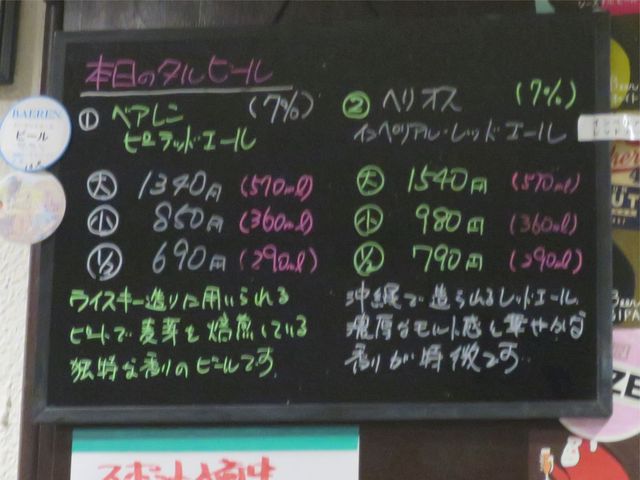 本日のタルビール
① ベアレン (7%)
ピートラッドエール
大 1340円 (570ml)
小 850円 (360ml)
1/2 690円 (290ml)
ライスキー造りに用いられる
ピートで麦芽を焙煎している
独特な香りのビールです
② ヘリオス (7%)
インペリアル・レッドエール
大 1540円 (570ml)
小 980円 (360ml)
1/2 790円 (290ml)
沖縄で造られるレッドエール
濃厚なモルト感と華やかな
香りが特徴です
BAEREN
ビール